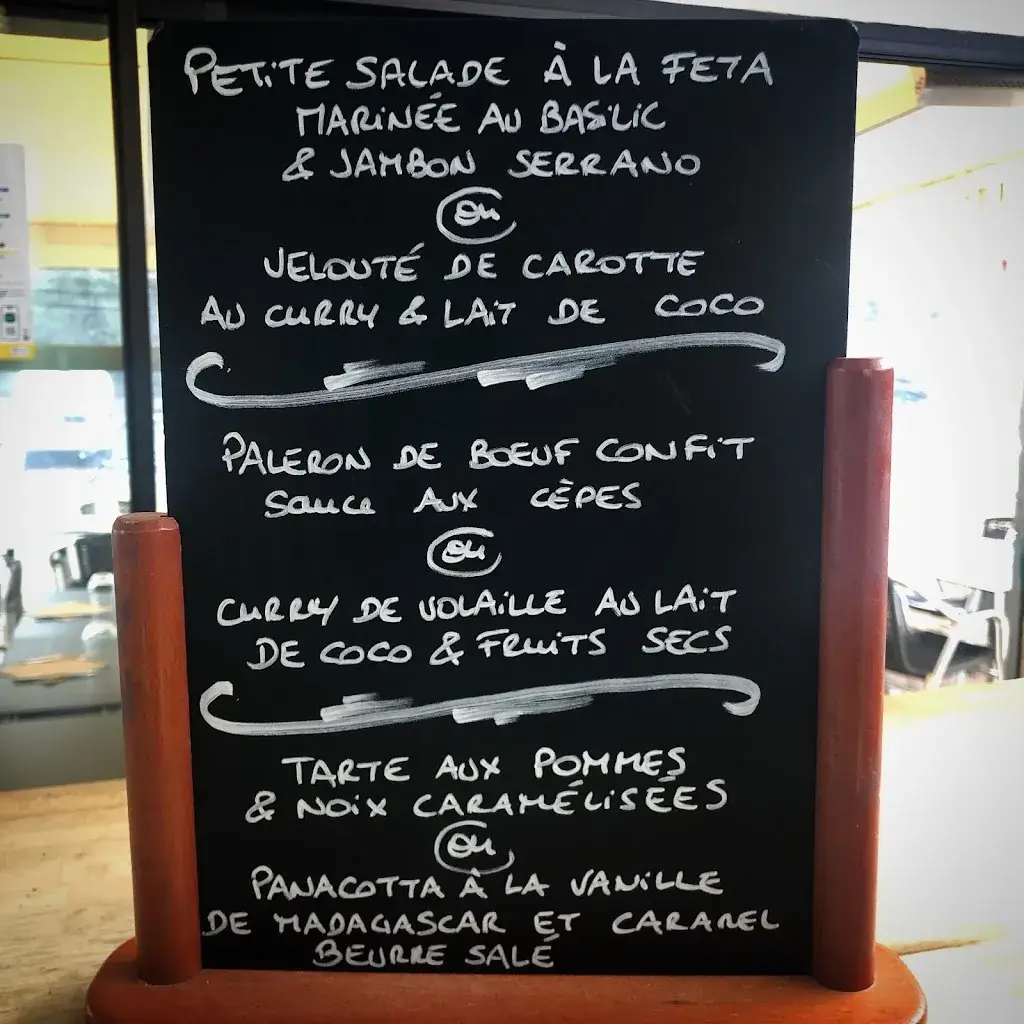 PETITE SALADE À LA FETA
MARINÉE AU BASILIC
& JAMBON SERRANO
ou
VELOUTÉ DE CAROTTE
AU CURRY & LAIT DE COCO
PALERON DE BOEUF CONFIT
SAUCE AUX CÈPES
ou
CURRY DE VOLAILLE AU LAIT
DE COCO & FRUITS SECS
TARTE AUX POMMES
& NOIX CARAMÉLISÉES
ou
PANACOTTA À LA VANILLE
DE MADAGASCAR ET CARAMEL
BEURRE SALÉ